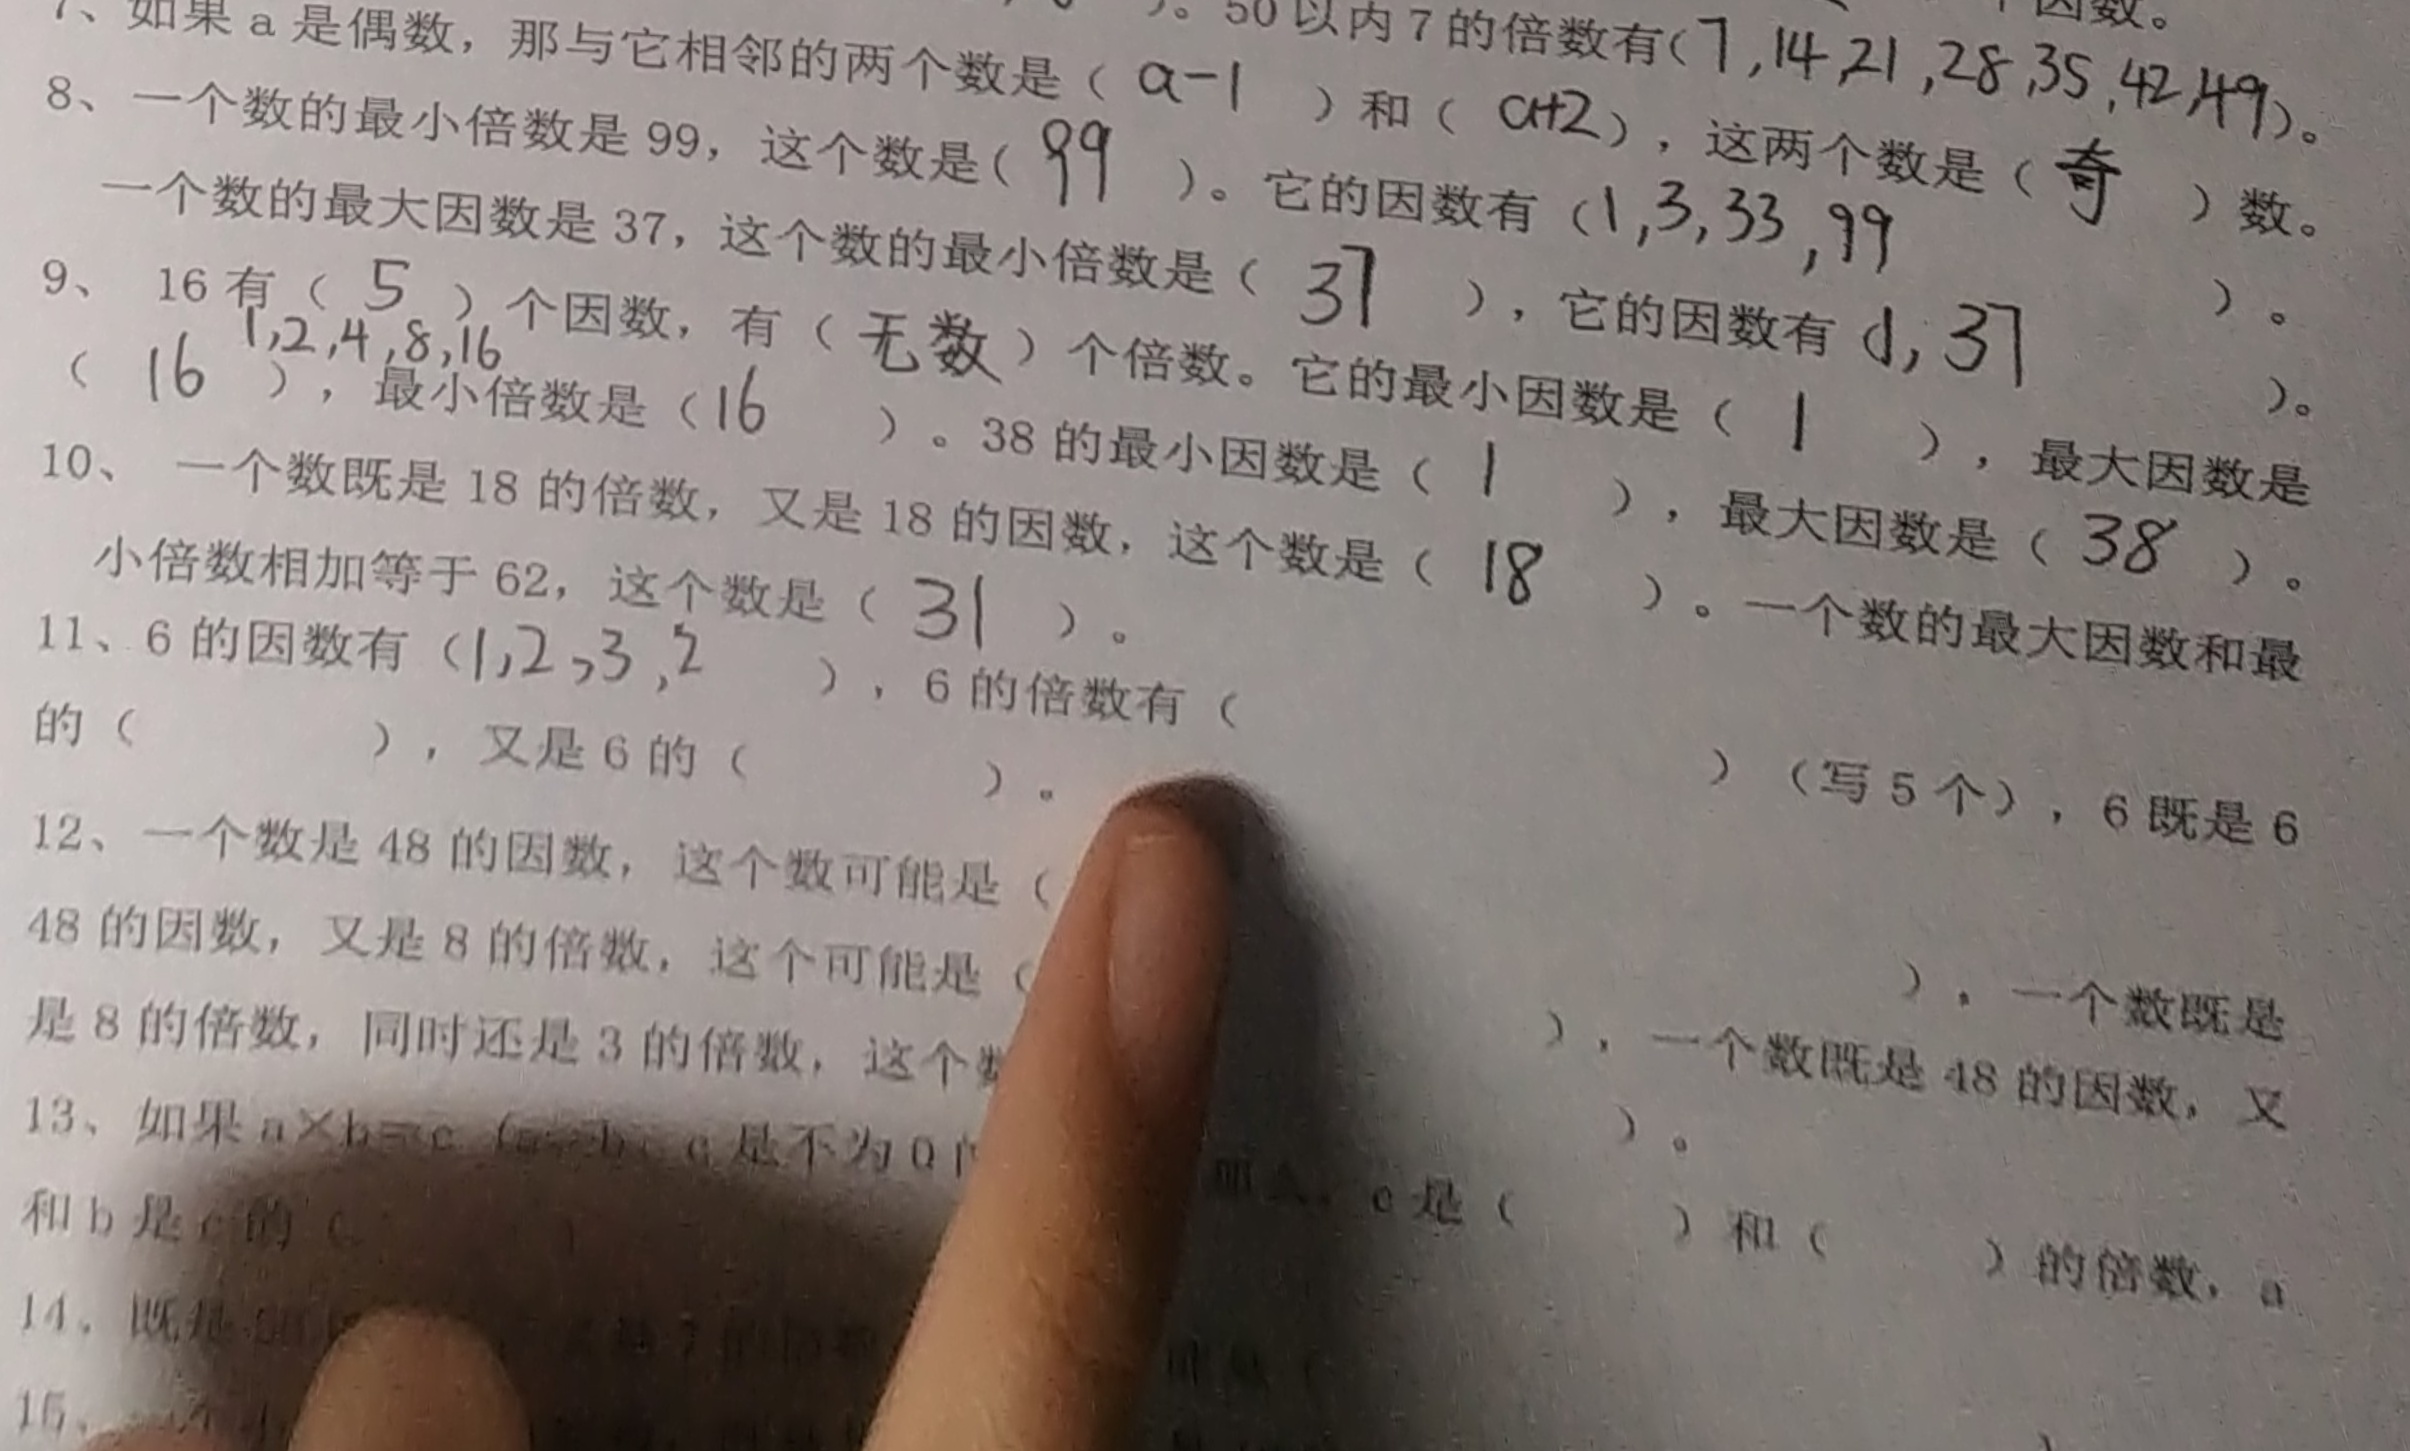 个因数。
）。50以内7的倍数有(7,14,21,28,35,42,49)。
7、如果a是偶数，那与它相邻的两个数是（a-1）和（a+2），这两个数是（奇）数。
8、一个数的最小倍数是99，这个数是(99)。它的因数有（1,3,33,99）。
一个数的最大因数是37，这个数的最小倍数是（37），它的因数有 1,37)。
9、16有（5）个因数，有（无数）个倍数。它的最小因数是（1），最大因数是
1,2,4,8,16
（16），最小倍数是（16）。38的最小因数是（1），最大因数是（38）。
10、一个数既是18的倍数，又是18的因数，这个数是（18）。一个数的最大因数和最
小倍数相加等于62，这个数是（31）。
11、6的因数有（1,2,3,2），6的倍数有（ ）（写5个），6既是6
的（ ），又是6的（ ）。
12、一个数是48的因数，这个数可能是（ ），一个数既是
48的因数，又是8的倍数，这个可能是（ ），一个数既是48的因数，又
是8的倍数，同时还是3的倍数，这个 ）。
13、如果a×b=c（a、b、c是不为0 c是（ ）和（ ）的倍数，a
和b是c的（
14、既是
15、